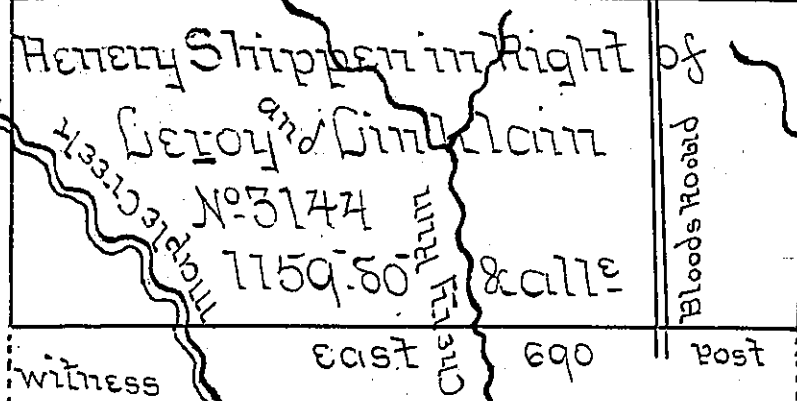 Henery Shippen in Right of
Leroy and Linklain
No 3144
1159.80 & alle
Maple Creek
Cherry Run
Bloods Roobd
witness
East 690
Post